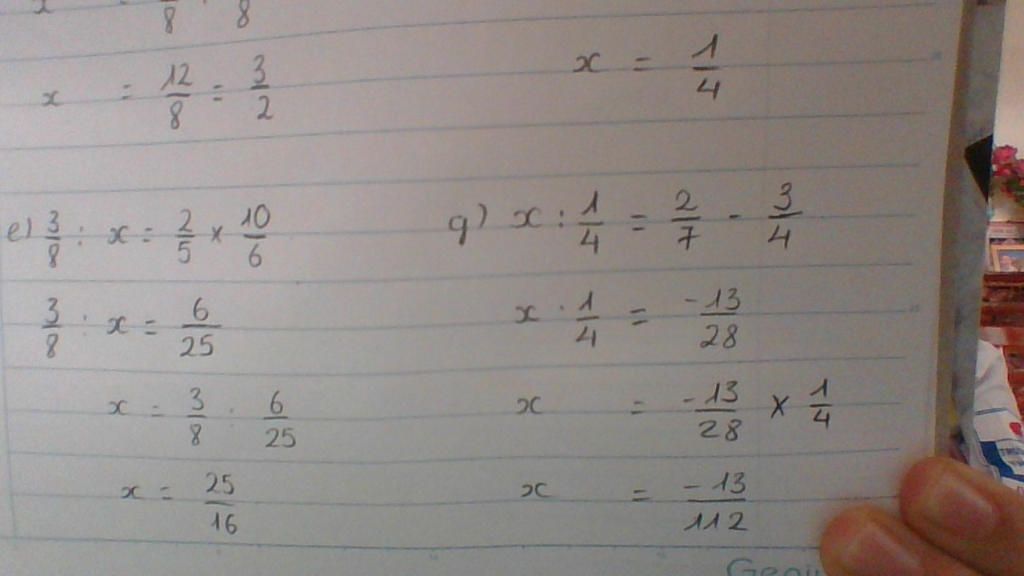 x = 12/8 = 3/2
x = 1/4
e) 3/8 : x = 2/5 x 10/6
3/8 : x = 6/25
x = 3/8 : 6/25
x = 25/16
g) x : 1/4 = 2/7 - 3/4
x : 1/4 = -13/28
x = -13/28 x 1/4
x = -13/112